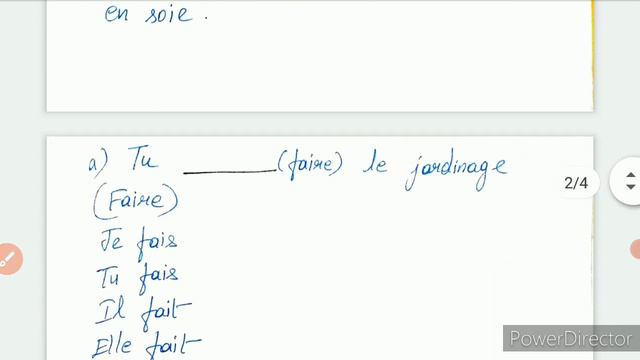 en soie.
a) Tu ______ (faire) le jardinage
(Faire)
Je fais
Tu fais
Il fait
Elle fait
2/4
PowerDirector